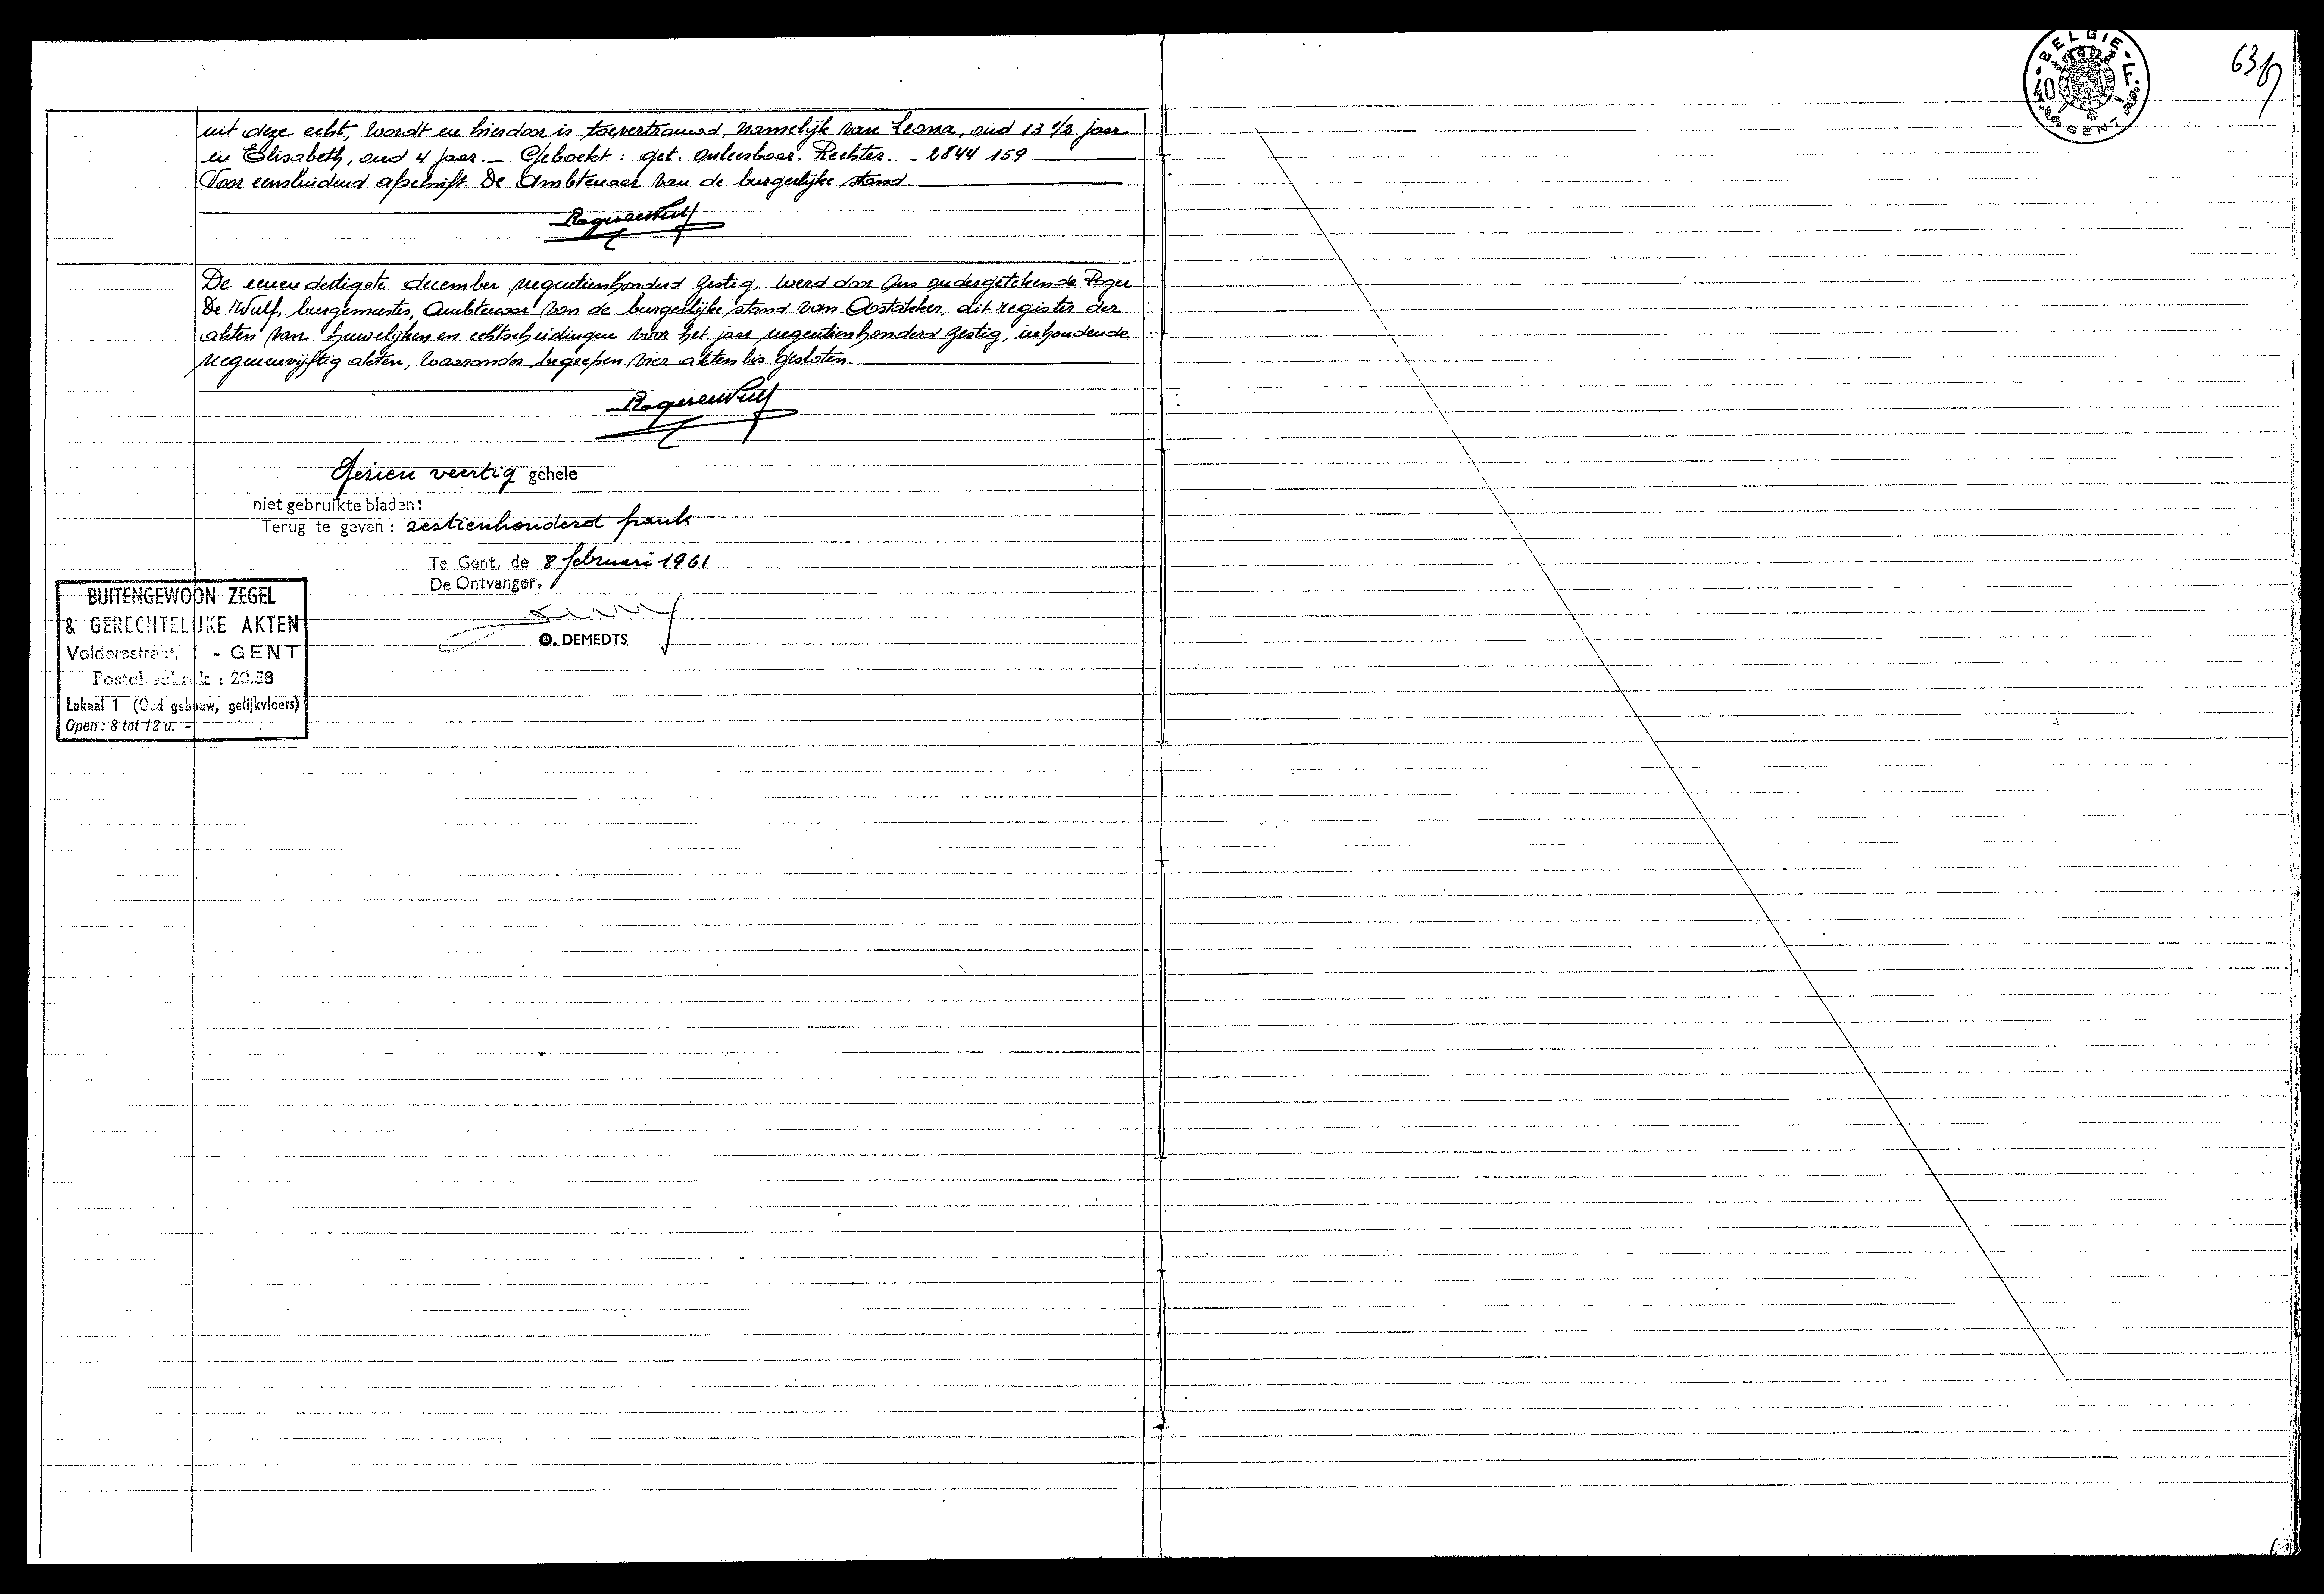 uit deze echt, wordt en hierdoor is toevertrouwd, namelijk van Leona, oud 13 1/2 jaar
en Elisabeth, oud 4 jaar. — Geboekt: get. onleesbaar. Rechter. - 2844 159
Voor eensluidend afschrift. De Ambtenaar van de burgerlijke stand.
Roger De Wulf
De eenendertigste december negentienhonderd zestig, werd door Ons ondergetekende Roger
De Wulf, burgemeester, Ambtenaar van de burgerlijke stand van Oostakker, dit register der
akten van huwelijken en echtscheidingen voor het jaar negentienhonderd zestig, inhoudende
negenenvijftig akten, waaronder begrepen vier akten bis gesloten.
Roger De Wulf
Gezien veertig gehele
niet gebruikte bladen:
Terug te geven: zestienhonderd frank
Te Gent, de 8 februari 1961
De Ontvanger.
O. DEMEDTS
BUITENGEWOON ZEGEL
& GERECHTELIJKE AKTEN
Voldersstraat, 1 - GENT
Postcheckrek: 20.58
Lokaal 1 (Oud gebouw, gelijkvloers)
Open: 8 tot 12 u. -
BELGIE
40 F.
GENT
63